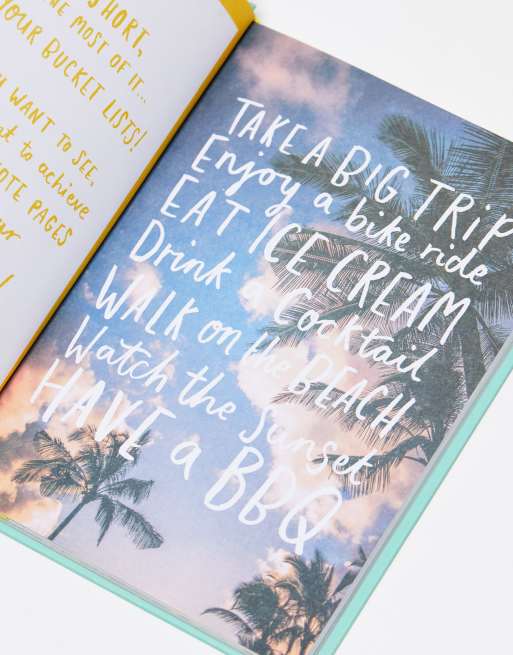 SHORT,
THE MOST OF IT...
YOUR BUCKET LISTS!
WANT TO SEE,
to achieve
PAGES
TAKE A BIG TRIP
Enjoy a bike ride
EAT ICE CREAM
Drink a Cocktail
WALK on the BEACH
Watch the Sunset
HAVE a BBQ